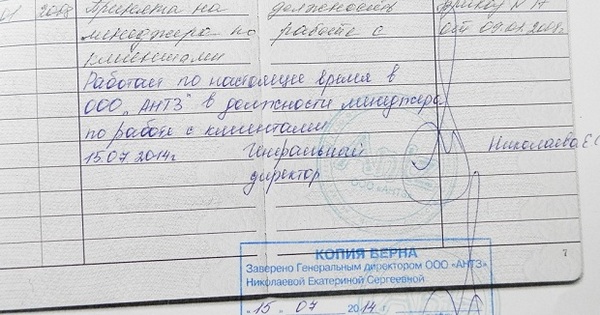 2008 Принята на должность приказ N 17
менеджера по работе с от 09.01.2008г
клиентами
Работает по настоящее время в
ООО „АНТЗ" в должности менеджера
по работе с клиентами
15.07.2014г Генеральный Николаева Е С
директор
ООО «АНТЗ»
КОПИЯ ВЕРНА
Заверено Генеральным директором ООО «АНТЗ»
Николаевой Екатериной Сергеевной
„15" 07 2014 г.
7